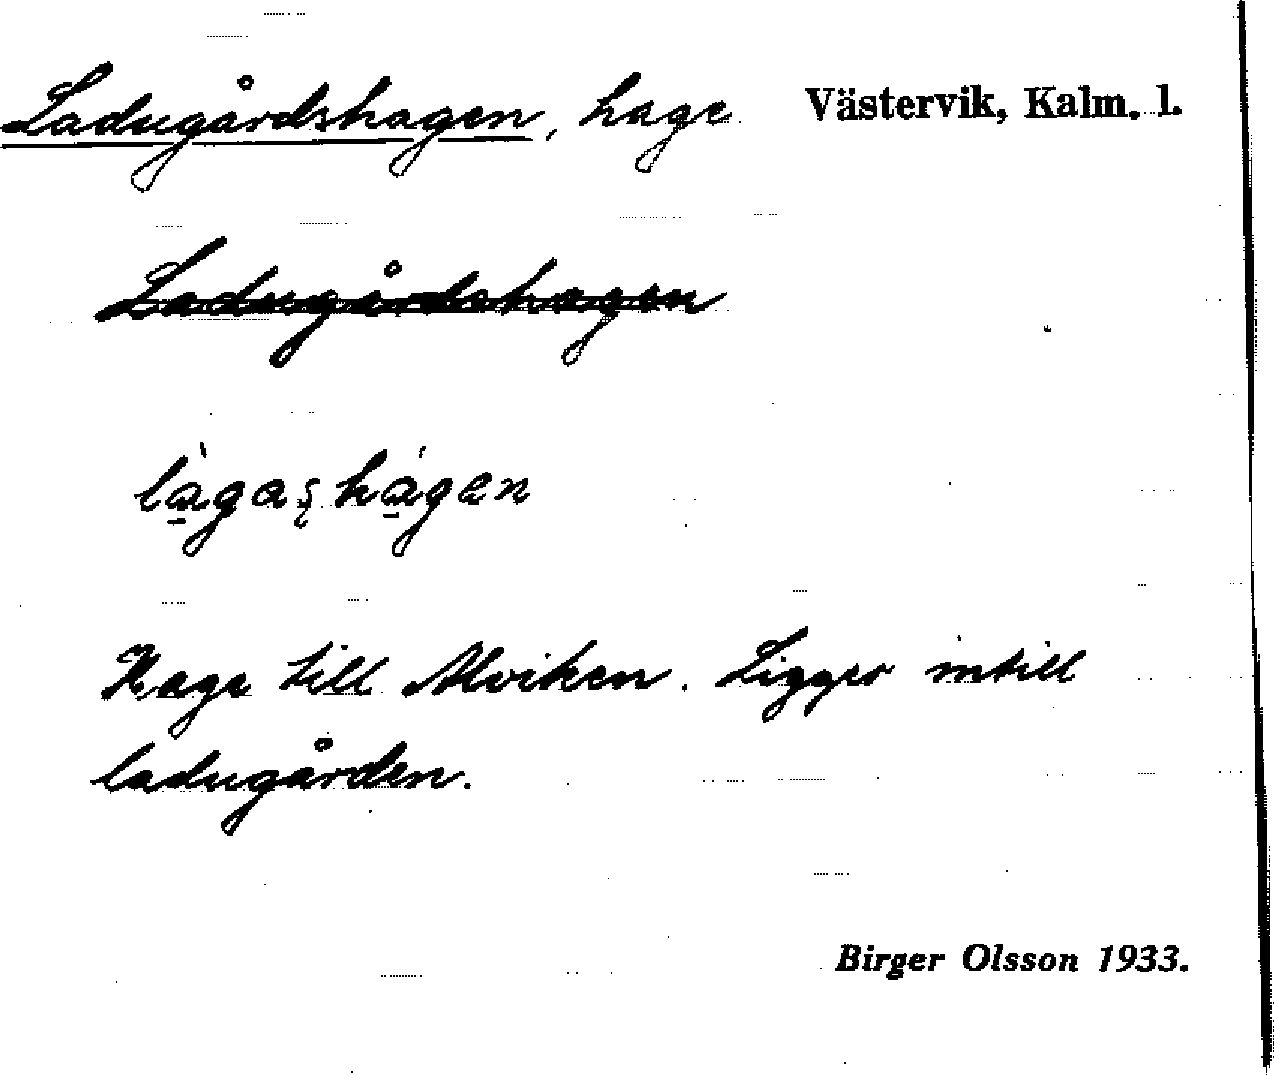 Ladugårdshagen, hage Västervik, Kalm. l.
Ladugårdshagen
Hage till Alviken. Ligger intill
ladugården.
Birger Olsson 1933.